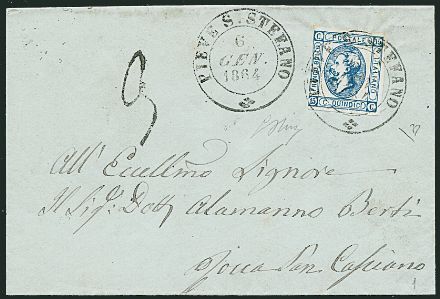 PIEVE S. STEFANO
6
GEN
1864
STEFANO
POSTALE
FRANCO BOLLO
ITALIANO
C. QUINDICI
All' Eccellmo Signore
Il Sigr Dott Alamanno Berti
Rocca San Casciano